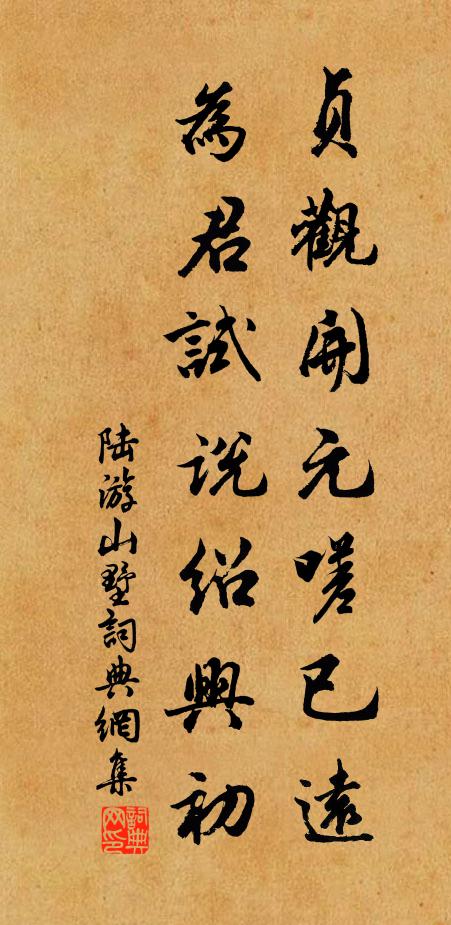 貞觀開元嗟已遠
為君試説紹興初
陆游山墅詞典網集
詞典網印